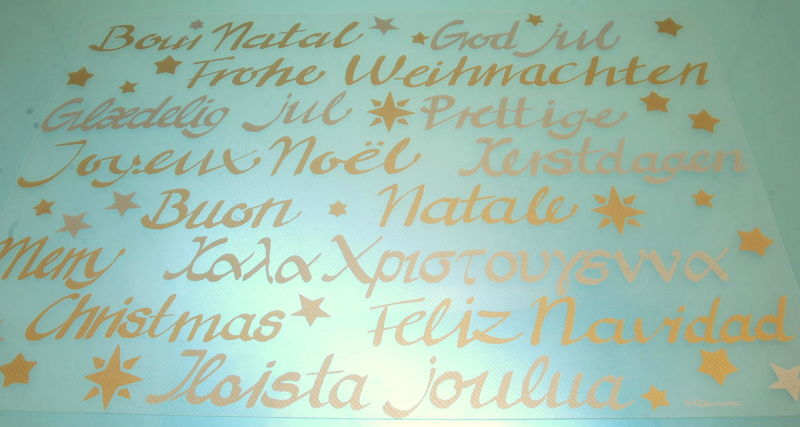 Bom Natal God jul
Frohe Weihnachten
Glædelig jul Prettige
Joyeux Noël Kerstdagen
Buon Natale
Merry Χαλα Χριστουγεννα
Christmas Feliz Navidad
Iloista joulua